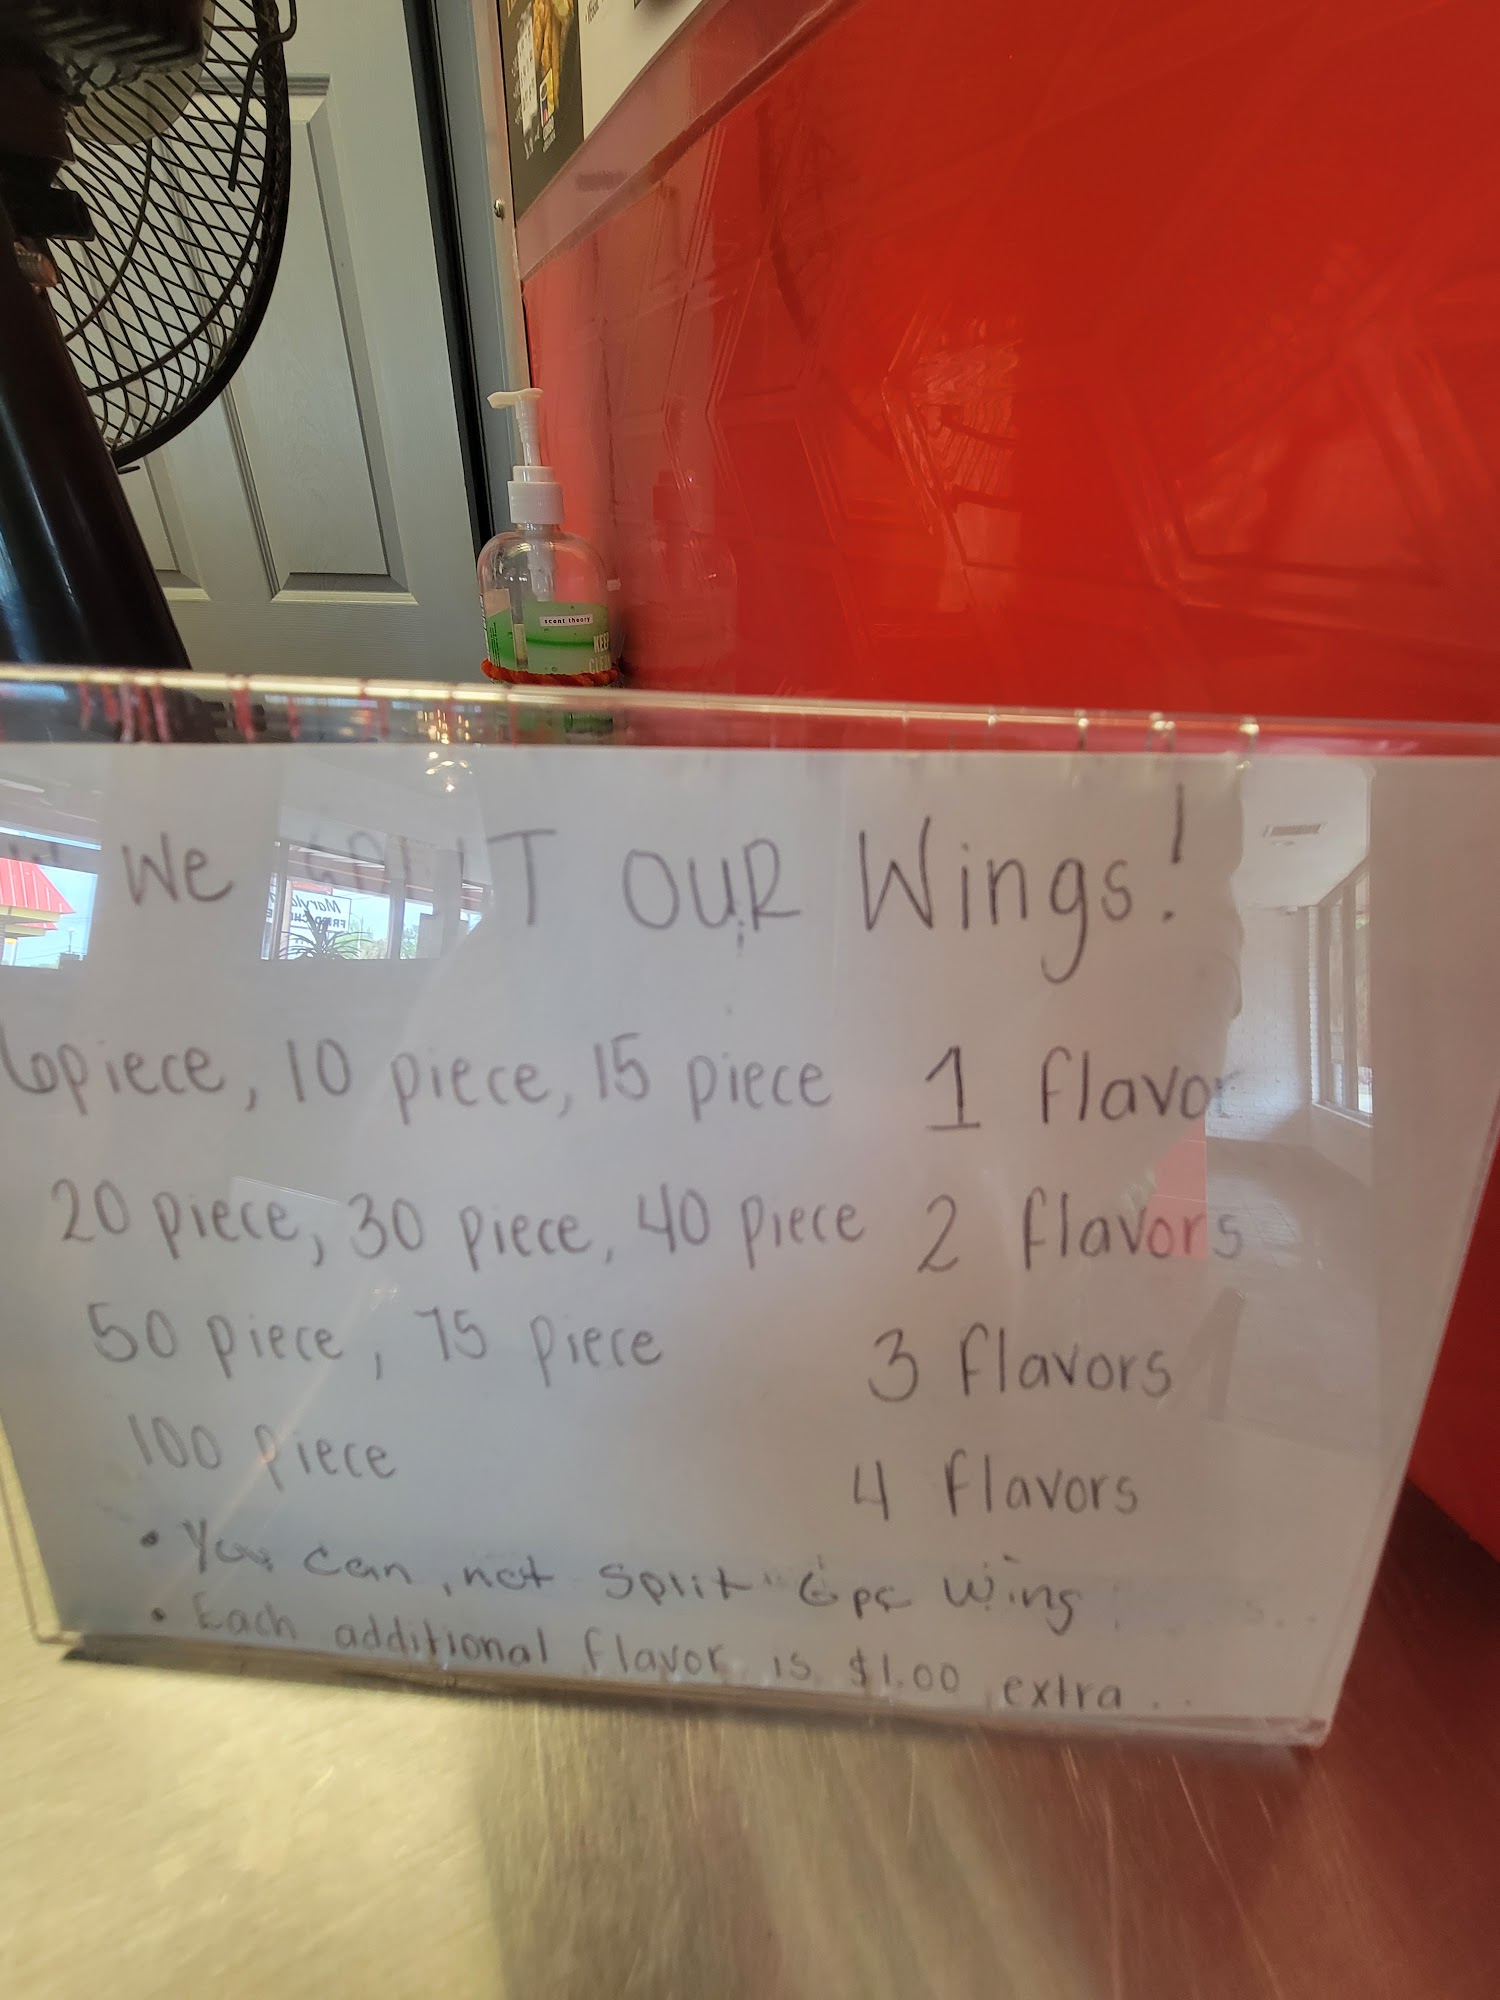 scent theory
KEEP
CLEAN
We T OUR Wings!
6piece, 10 piece, 15 piece 1 flavor
20 piece, 30 piece, 40 piece 2 flavors
50 piece, 75 piece 3 flavors
100 piece 4 flavors
• You can not split 6pc wing
• Each additional flavor is $1.00 extra